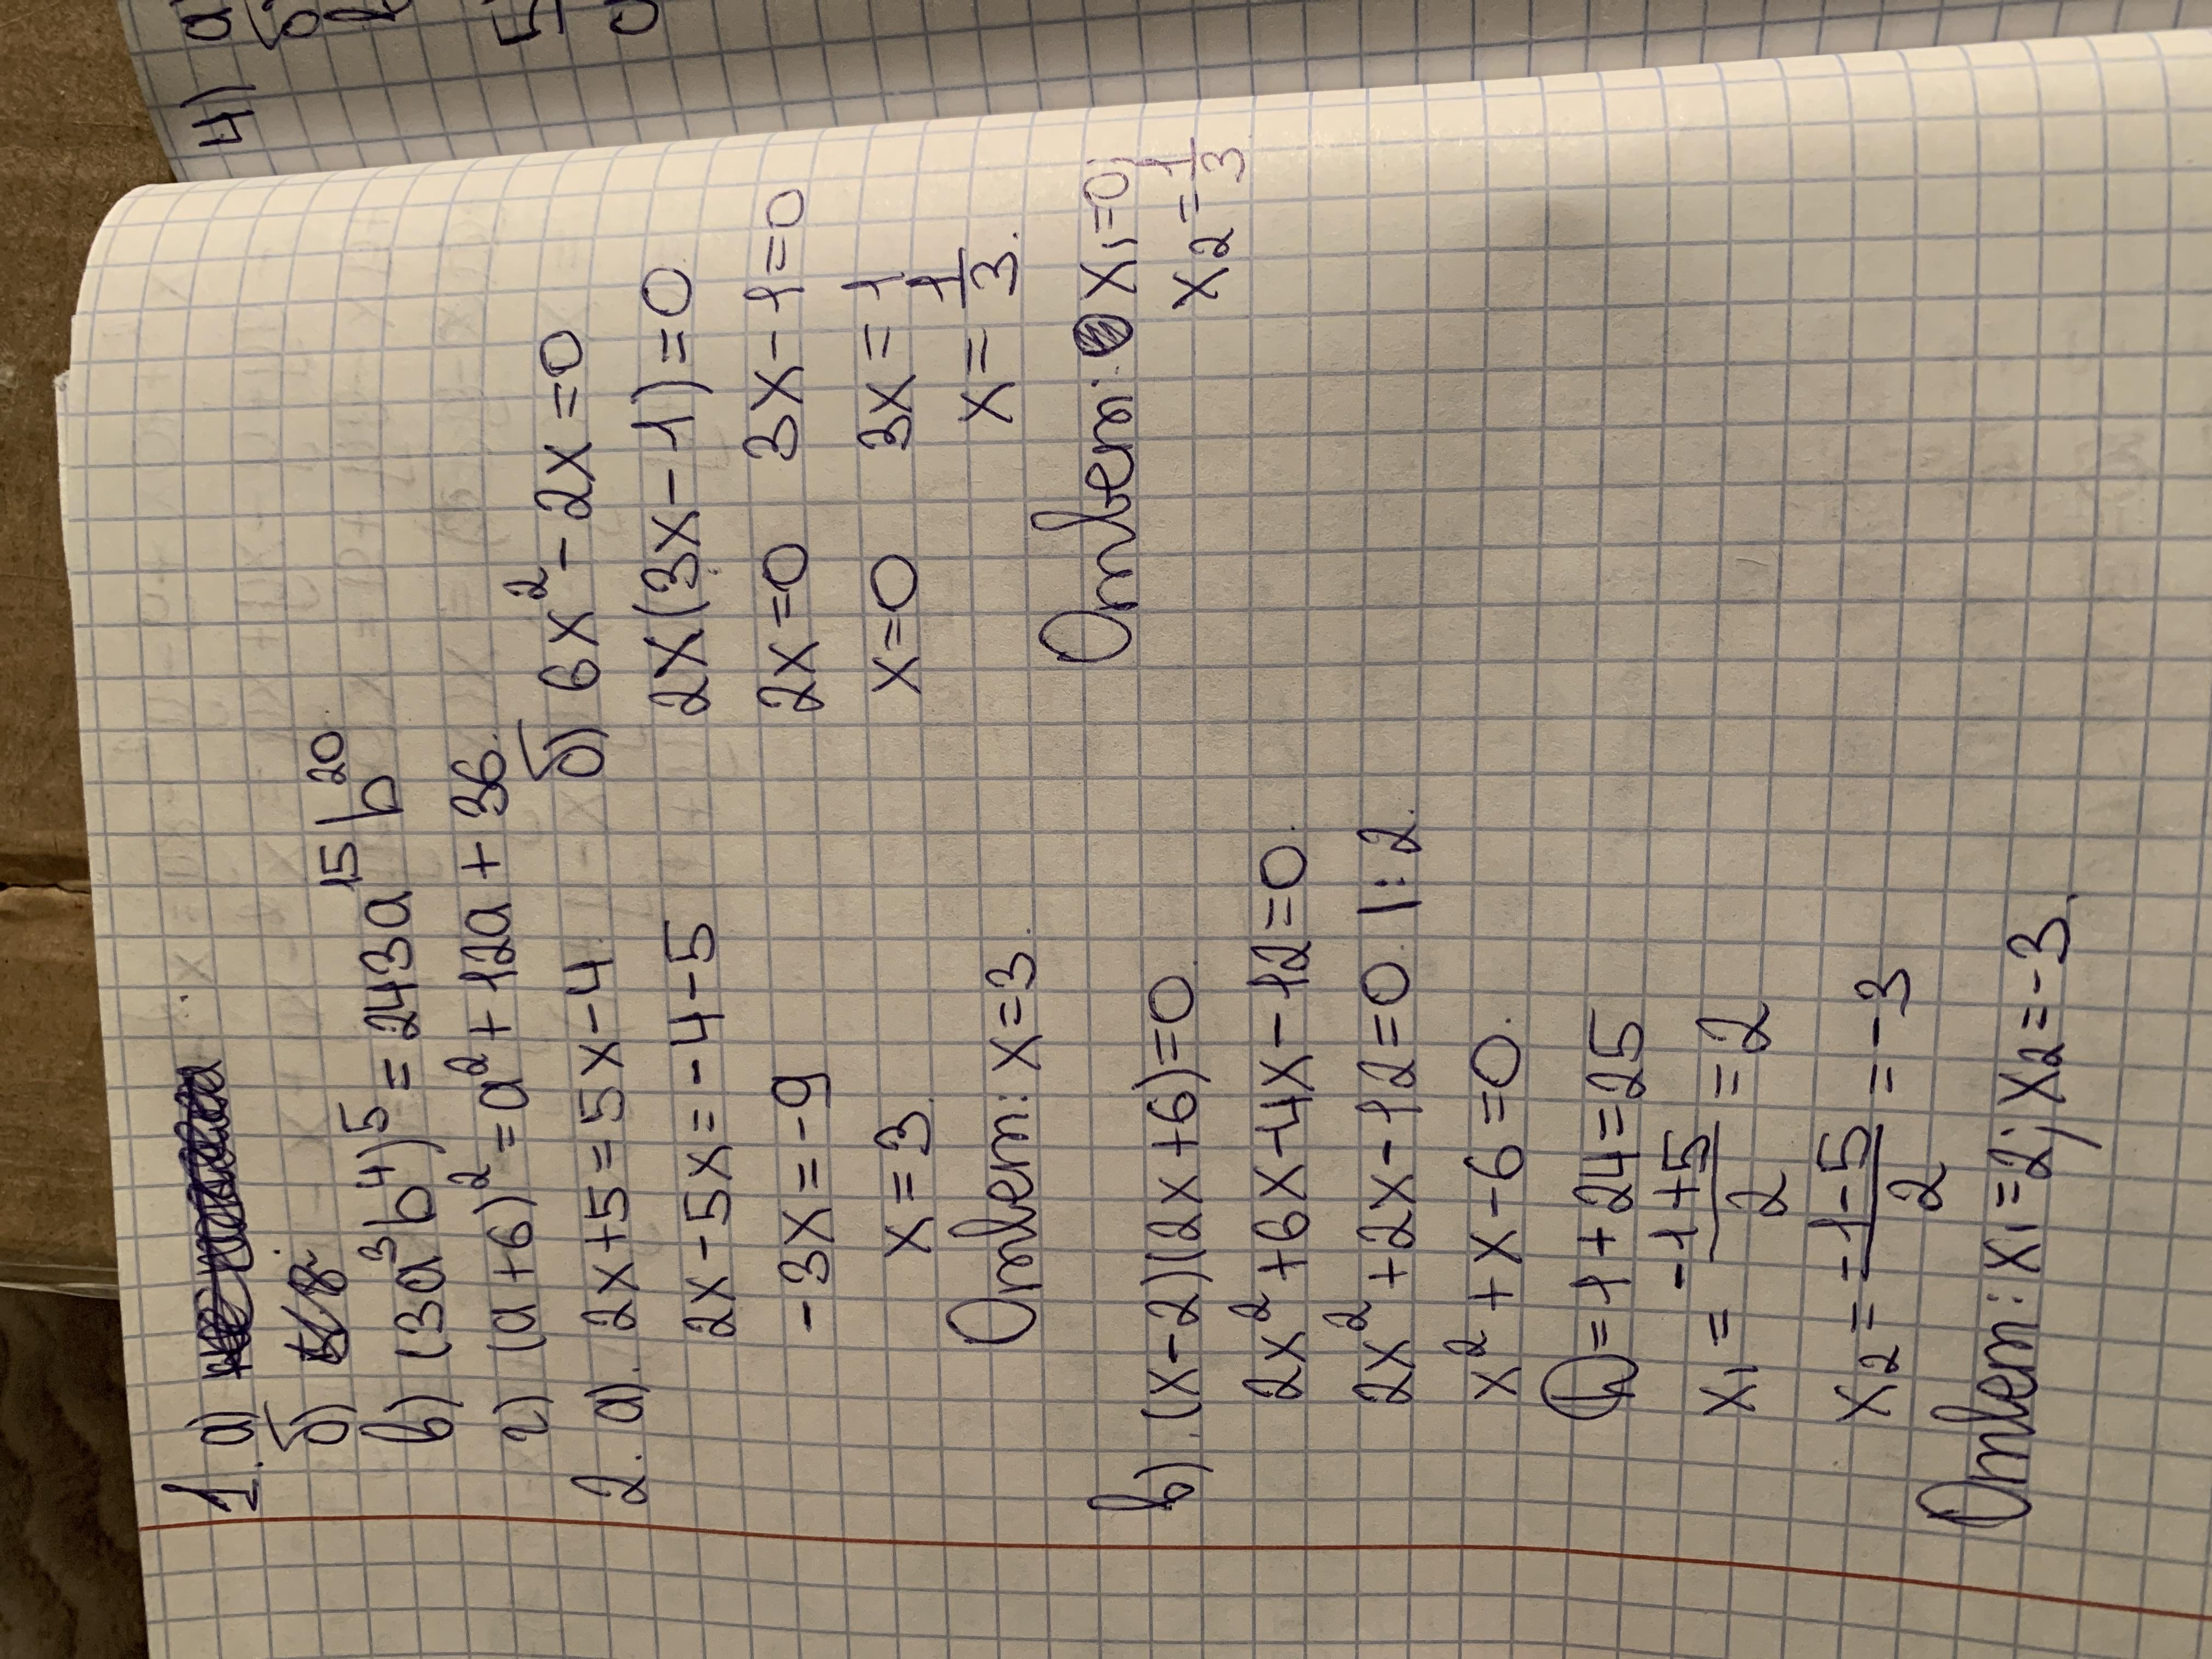 1. а)
б)
в) (3a³b⁴)⁵ = 243a¹⁵b²⁰
г) (a+6)² = a² + 12a + 36.
2. а). 2x+5=5x-4.
2x-5x=-4-5
-3x=-9
x=3.
Ответ: x=3.
б) 6x²-2x=0
2x(3x-1)=0
2x=0 3x-1=0
x=0 3x=1
x=1/3.
Ответ: x₁=0;
x₂=1/3
в). (x-2)(2x+6)=0.
2x²+6x-4x-12=0.
2x²+2x-12=0. |:2.
x²+x-6=0.
D=1+24=25
x₁=(-1+5)/2=2
x₂=(-1-5)/2=-3
Ответ: x₁=2; x₂=-3.
4) а